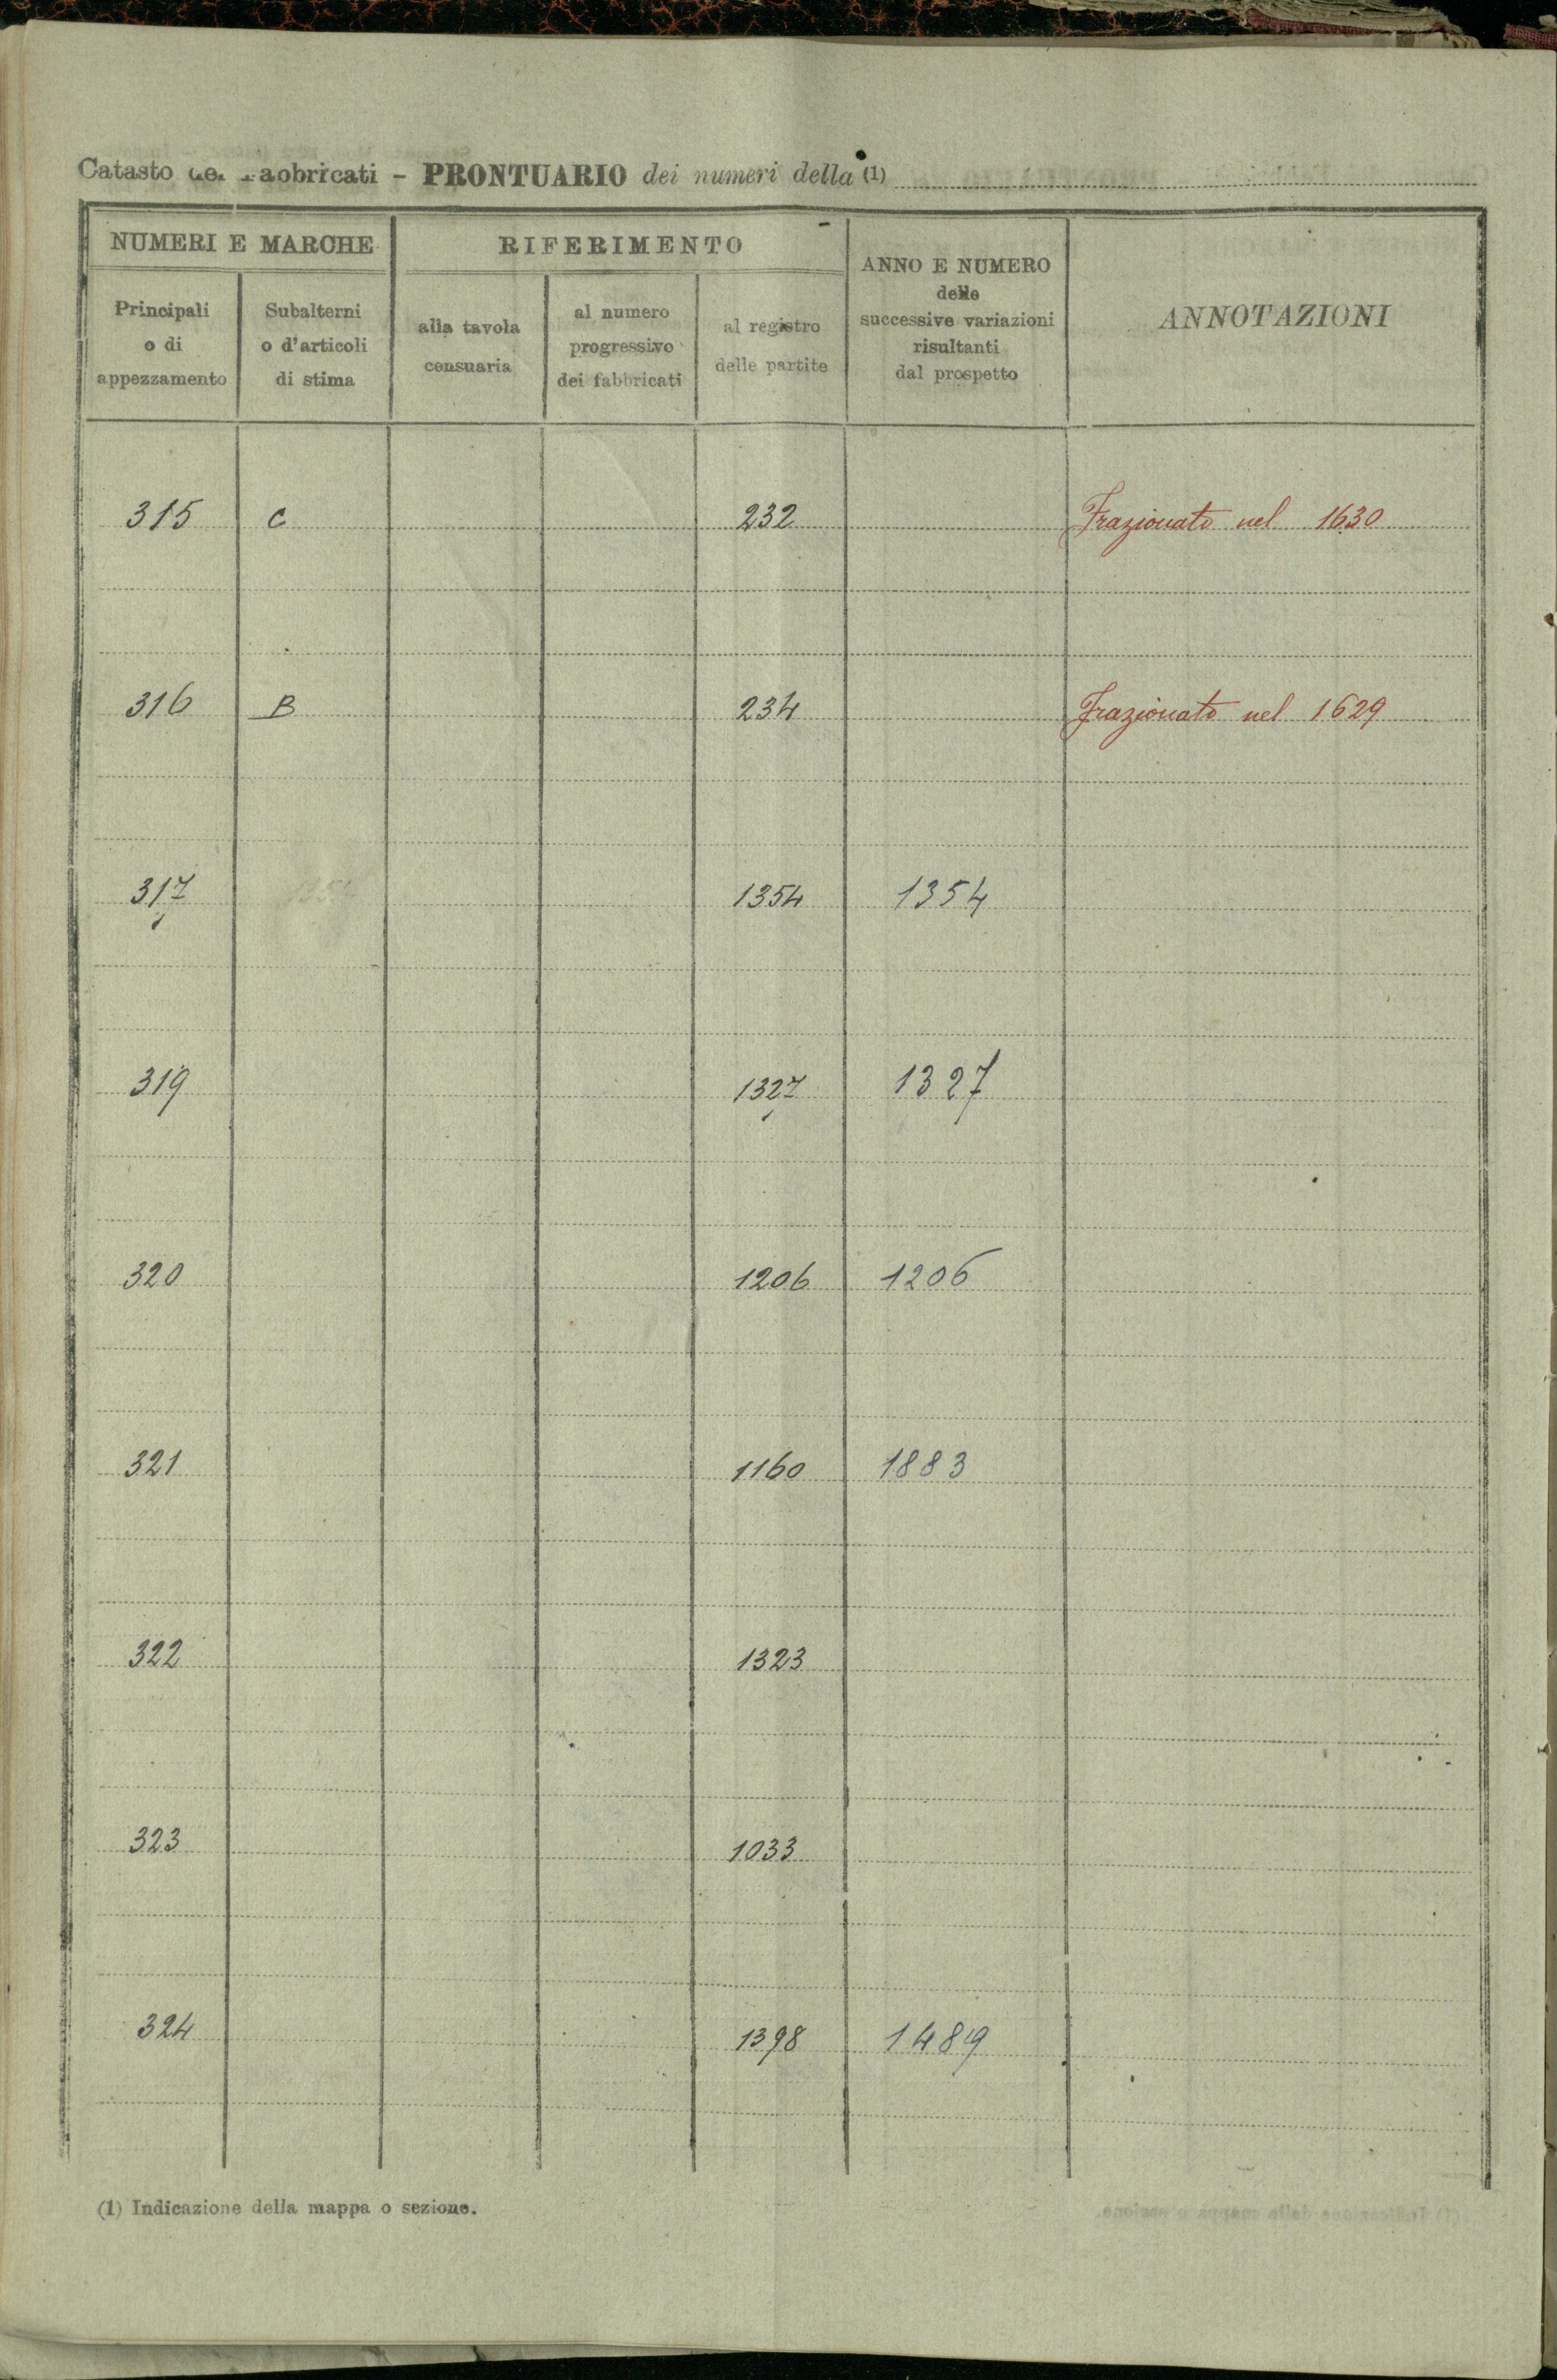 Catasto dei Fabbricati - PRONTUARIO dei numeri della (1)
NUMERI E MARCHE
RIFERIMENTO
ANNO E NUMERO
delle
successive variazioni
risultanti
dal prospetto
ANNOTAZIONI
Principali
o di
appezzamento
Subalterni
o d'articoli
di stima
alla tavola
censuaria
al numero
progressivo
dei fabbricati
al registro
delle partite
315 C 232 Frazionato nel 1630
316 B 234 Frazionato nel 1629
317 1354 1354
319 1327 1327
320 1206 1206
321 1160 1883
322 1323
323 1033
324 1398 1489
(1) Indicazione della mappa o sezione.